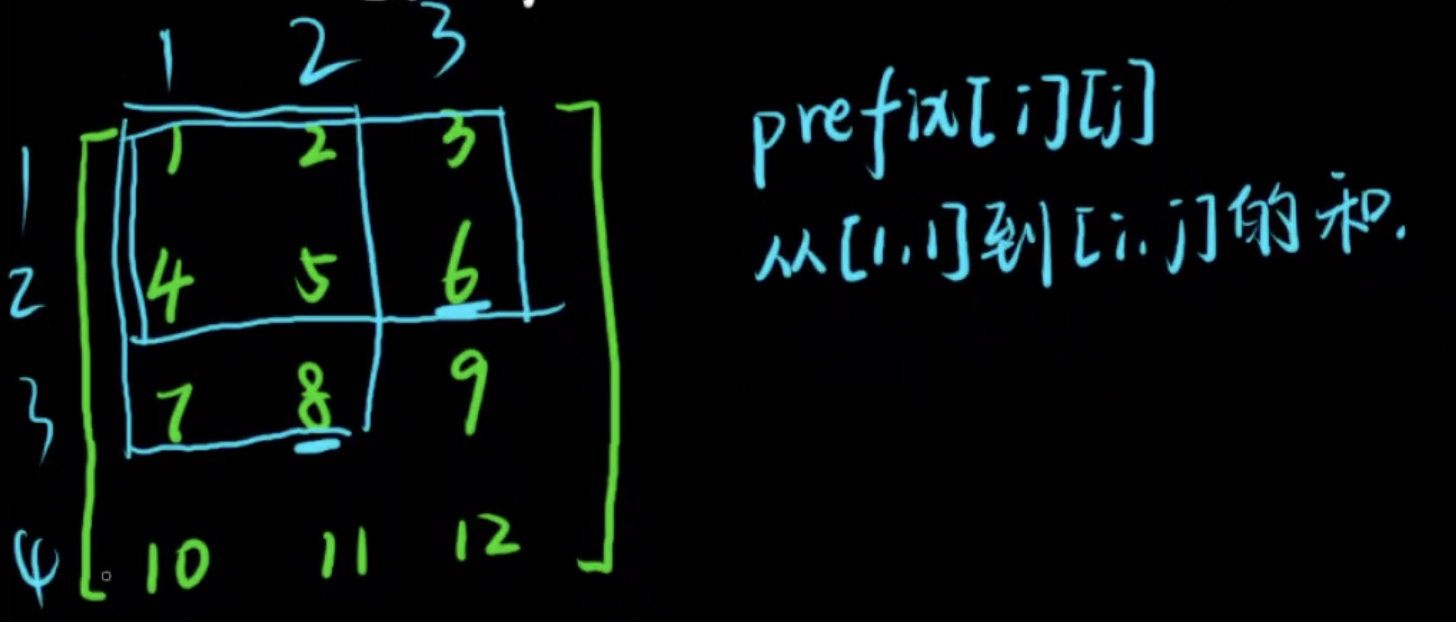 1 2 3
1 1 2 3
2 4 5 6
3 7 8 9
4 10 11 12
prefix[i][j]
从[1,1]到[i,j]的和.